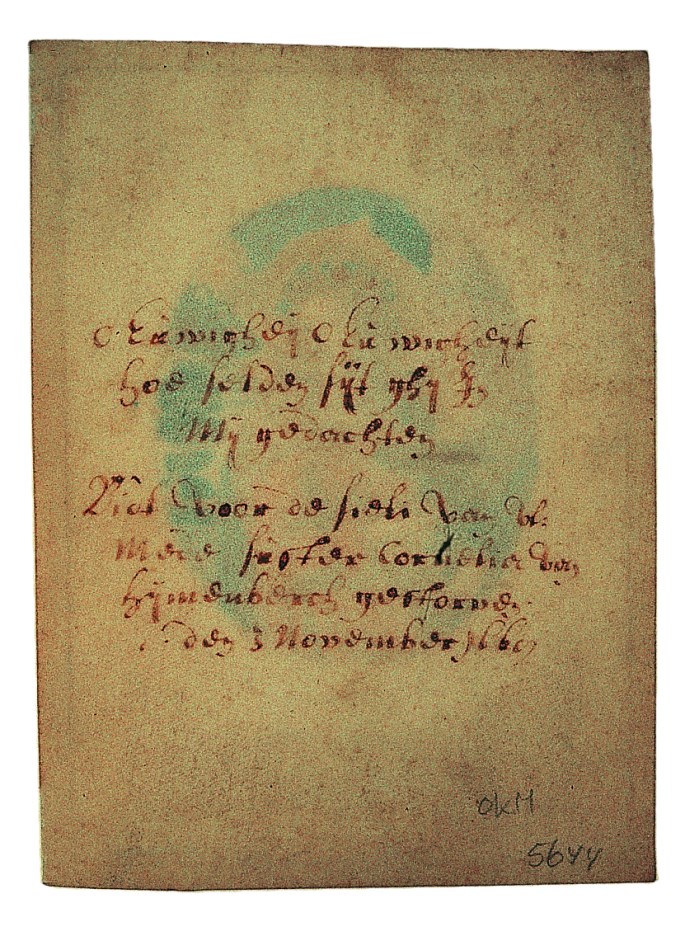 O Eùwigheÿ O Eùwigheÿt
hoe selden sijt ghij In
Mij gedachten
Bidt voor de siele van vl:
Mede sùster Cornelia van
hijmenberch gestorven
den 3 November
okM
5644